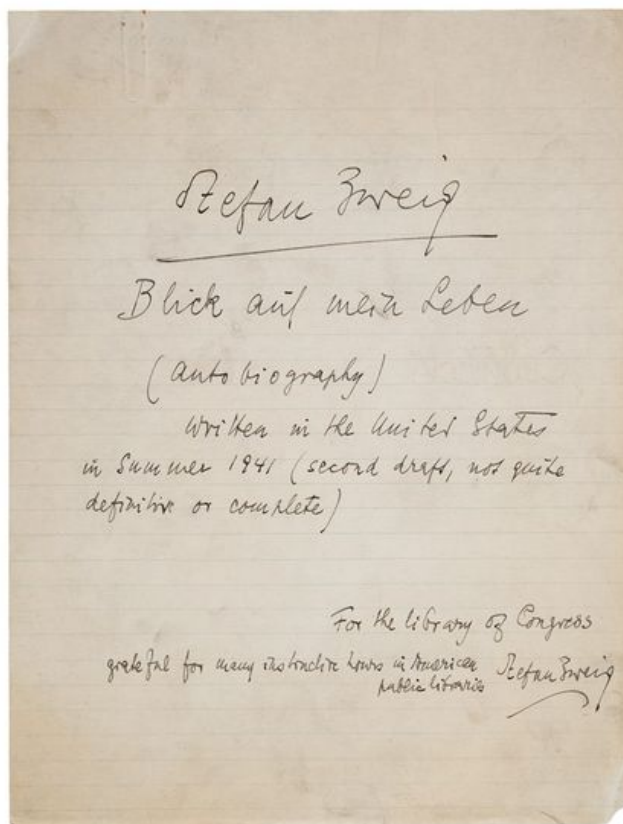 Stefan Zweig
Blick auf mein Leben
(autobiography)
written in the United States
in Summer 1941 (second draft, not quite
definitive or complete)
For the library of Congress
grateful for many instructive hours in American
public libraries Stefan Zweig